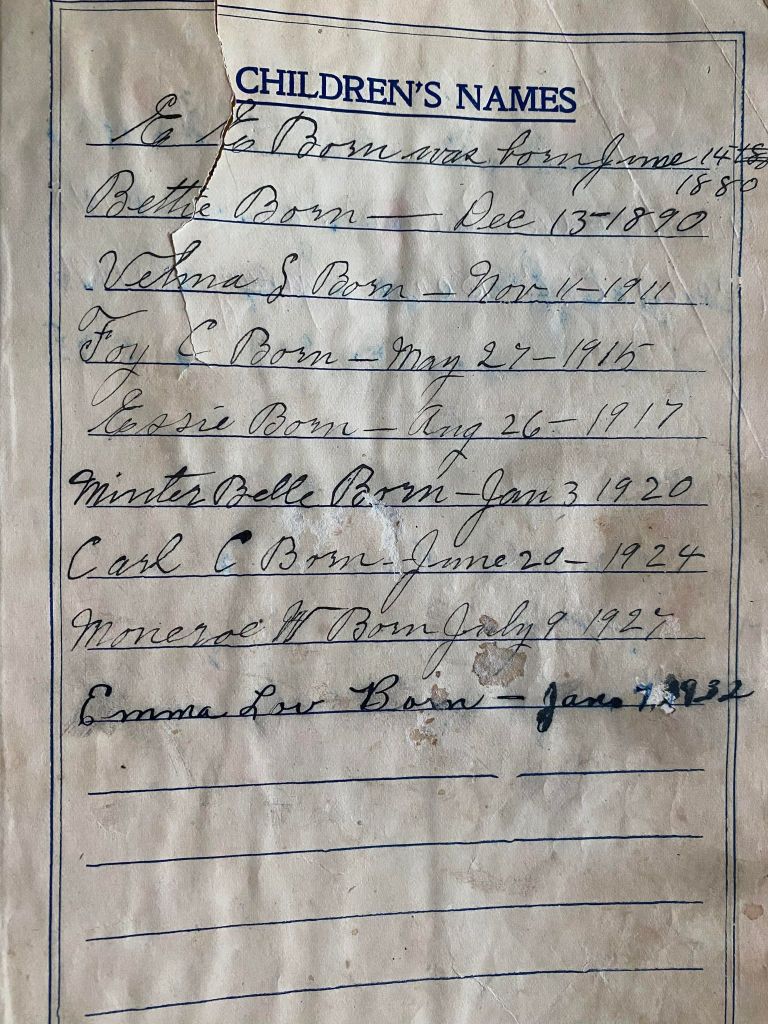 CHILDREN'S NAMES
E E Born was born June 14
1880
Bettie Born — Dec 13-1890
Velma S Born — Nov 11-1911
Foy C Born — May 27-1915
Essie Born — Aug 26-1917
Minter Belle Born - Jan 3 1920
Carl C Born - June 20 - 1924
Moneroe W Born July 9 1927
Emma Lou Born - Jan. 7, 1932